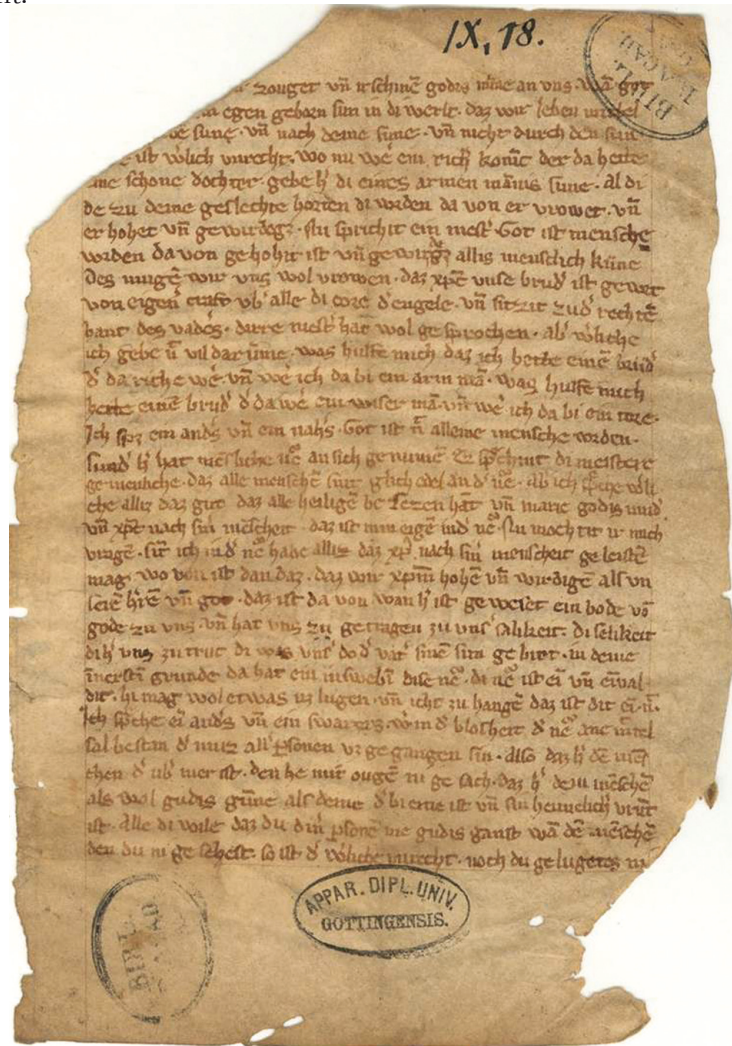 IX, 18.
zouget vn̄ irschinē godis mīne an vns. wā got
egen geborn sun in di werlt. daz wir leben
sune. vn̄ nach deme sune. vn̄ nicht durch den sun
ist w̓lich vnrecht. wo nu we̓ ein rich̓ konīc der da hette
eine schone dochter. gebe h̓ di eines armen mānis sune. al di
de zu deme geslechte horten di wrden da von er vrowet. vn̄
er hohet vn̄ ge wirdegz. Nu sprichit ein meist̓ Got ist mensche
wrden da von ge hohit ist vn̄ ge wirdegz allis menslich kūne
des mugē wir vns wol vrowen. daz xpc̄ vnse brud̓ ist ge
von eigen̓ craft vb̓ alle di core d̓ engele. vn̄ sitzit zu d̓ rechtē
hant des vade̓s. dirre meist̓ hat wol ge sprochen. ab̓ w̓liche
ich gebe n̄ vil dar ūme. was hulfe mich daz ich hette einē brud̓
d̓ da riche we̓ vn̄ we̓ ich da bi ein arm mā. was hulfe mich
hette einē brud̓ d̓ da we̓ ein wiser mā. vn̄ we̓ ich da bi ein tore.
Ich spͨ ein and̓s vn̄ ein nah̓s. Got ist n̄ alleine mensche worden.
sund̓ h̓ hat mēsliche nͣ an sich ge numē Ez sp̓chint di meistere
ge meinliche. daz alle menschē sint glich edel an d̓ nͣ. ab̓ ich sp̓che w̓li
che alliz daz gut daz alle heiligē be sezen hāt vn̄ marie godis mud̓
vn̄ xpc̄ nach sin̓ mēscheit. daz ist min eigē in d̓ nͣ. Nu mocht ir mich
vragē. sīt ich in d̓ nͣ habe alliz daz xpc̄ nach sin̓ menscheit ge leistē
mag. wo von ist dan daz. daz wir xpm̄ hohē vn̄ wirdigē als vn
seiē h̓rē vn̄ got. daz ist da von wan h̓ ist ge weset ein bode vō
gode zu vns vn̄ hat vns zu ge tragen zu vns̓ salikeit. di selikeit
di h̓ vns zu truc di was vns̓ do d̓ vat̓ sinē sun ge birt. in deme
īnerstin grunde da hat ein inswebī dise nͣ. di nͣ ist eī vn̄ eīval
dic. hi mag wol etwas uz lugen. vn̄ icht zu hangē daz ist dit eī. n̄.
Ich sp̓che eī and̓s vn̄ ein swarers. w̓ in d̓ blosheit d̓ nͣ ane mittel
sal bestan d̓ muz all̓ p̱sonen vz ge gangen sin. also daz h̓ dē mēs
chen d̓ ub̓ mer ist. den he mit ougē ni ge sach. daz h̓ deme mēschē
als wol gudis gūne als deme d̓ bi eme ist vn̄ sin heimelich̓ vrūt
ist. Alle di wile daz du din̓ p̱sonē me gudis ganst wā dē mēschē
den du ni ge sehest. so ist d̓ w̓liche vnrecht. noch du ge lugetes ni
APPAR. DIPL. UNIV.
GOTTINGENSIS.
BIBL.
ACAD
BIBL.
ACAD